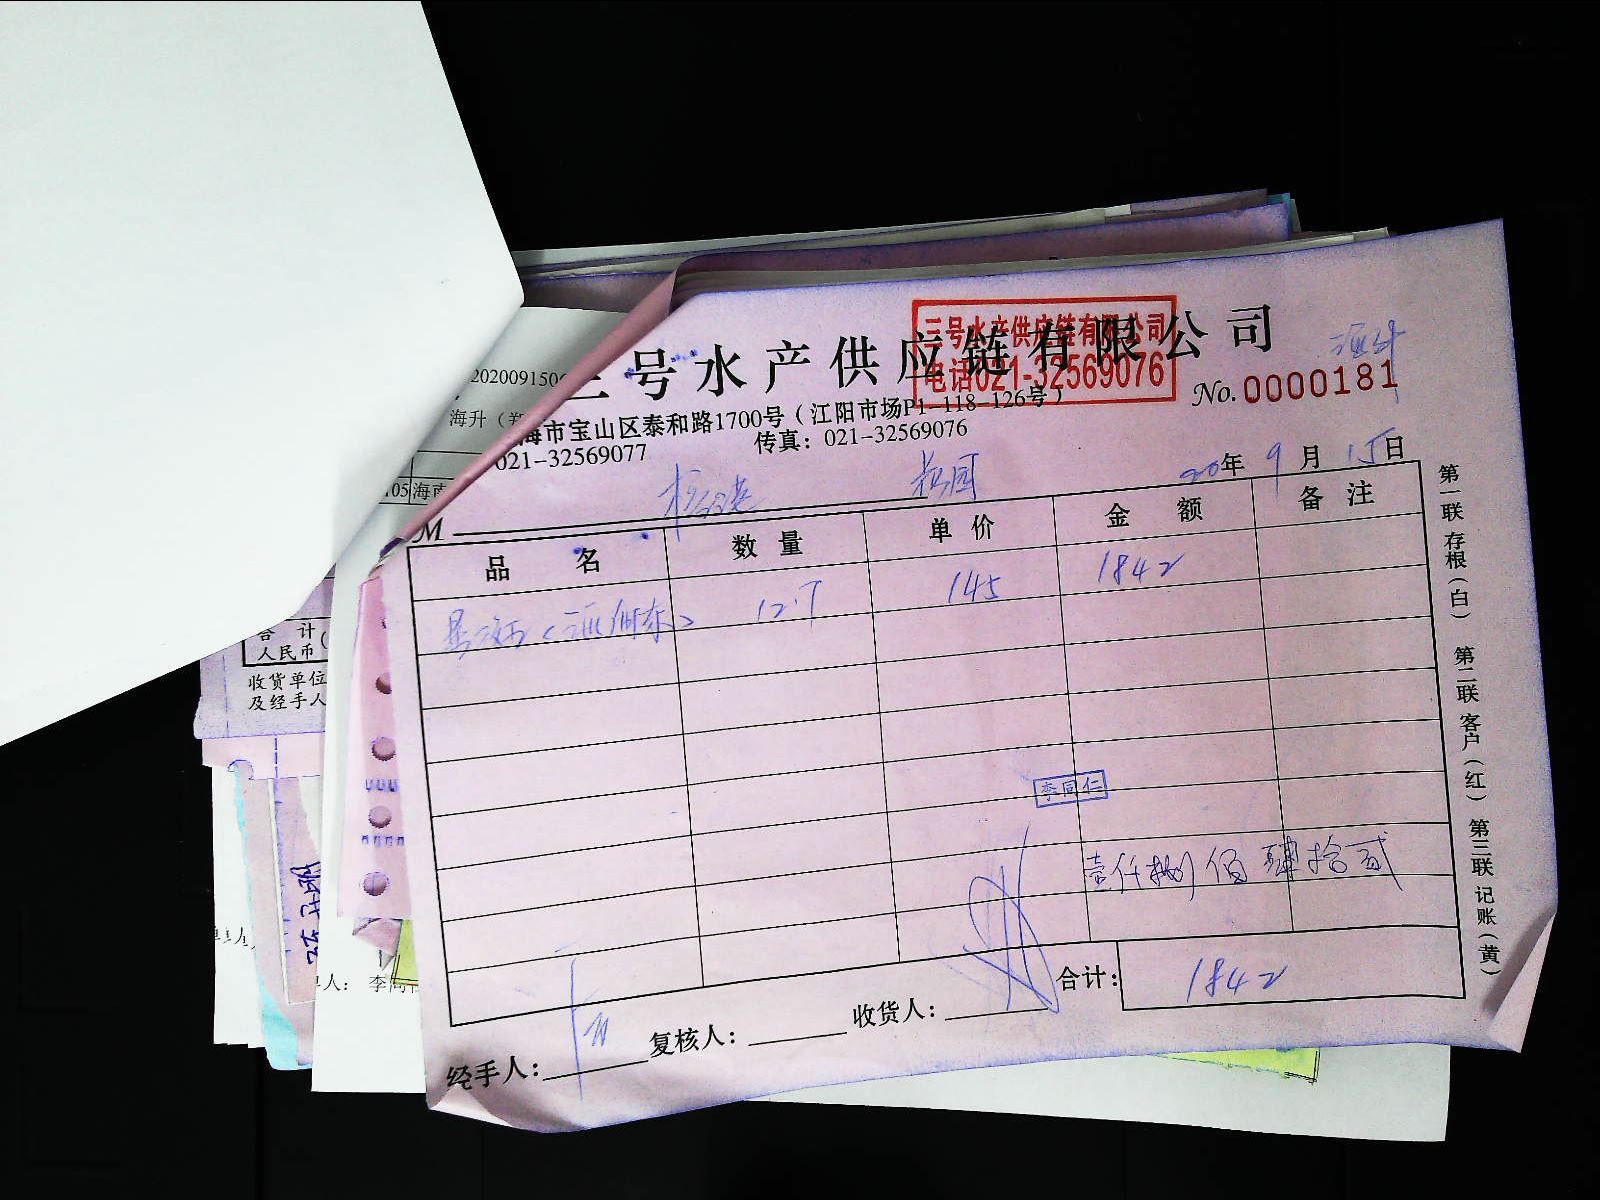 三号水产供应链有限公司
三号水产供应链有限公司
电话021-32569076
No.0000181
海市宝山区泰和路1700号（江阳市场P1-118-126号）
021-32569077
传真：021-32569076
20年9月15日
M
品名 数量 单价 金额 备注
12.7 145 1842
李同仁
壹仟捌佰肆拾贰
合计： 1842
经手人： 复核人： 收货人：
第一联 存根（白） 第二联 客户（红） 第三联 记账（黄）
2020091500
海升（郑
105 海南
合计
人民币（
收货单位
及经手人
单人：李同仁